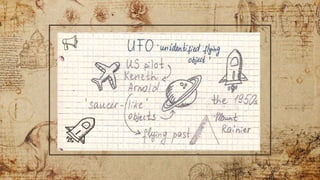 UFO - unidentified flying
object
US pilot
Keneth
Arnold
"saucer-like
objects
flying past
the 1950s
Mount
Rainier